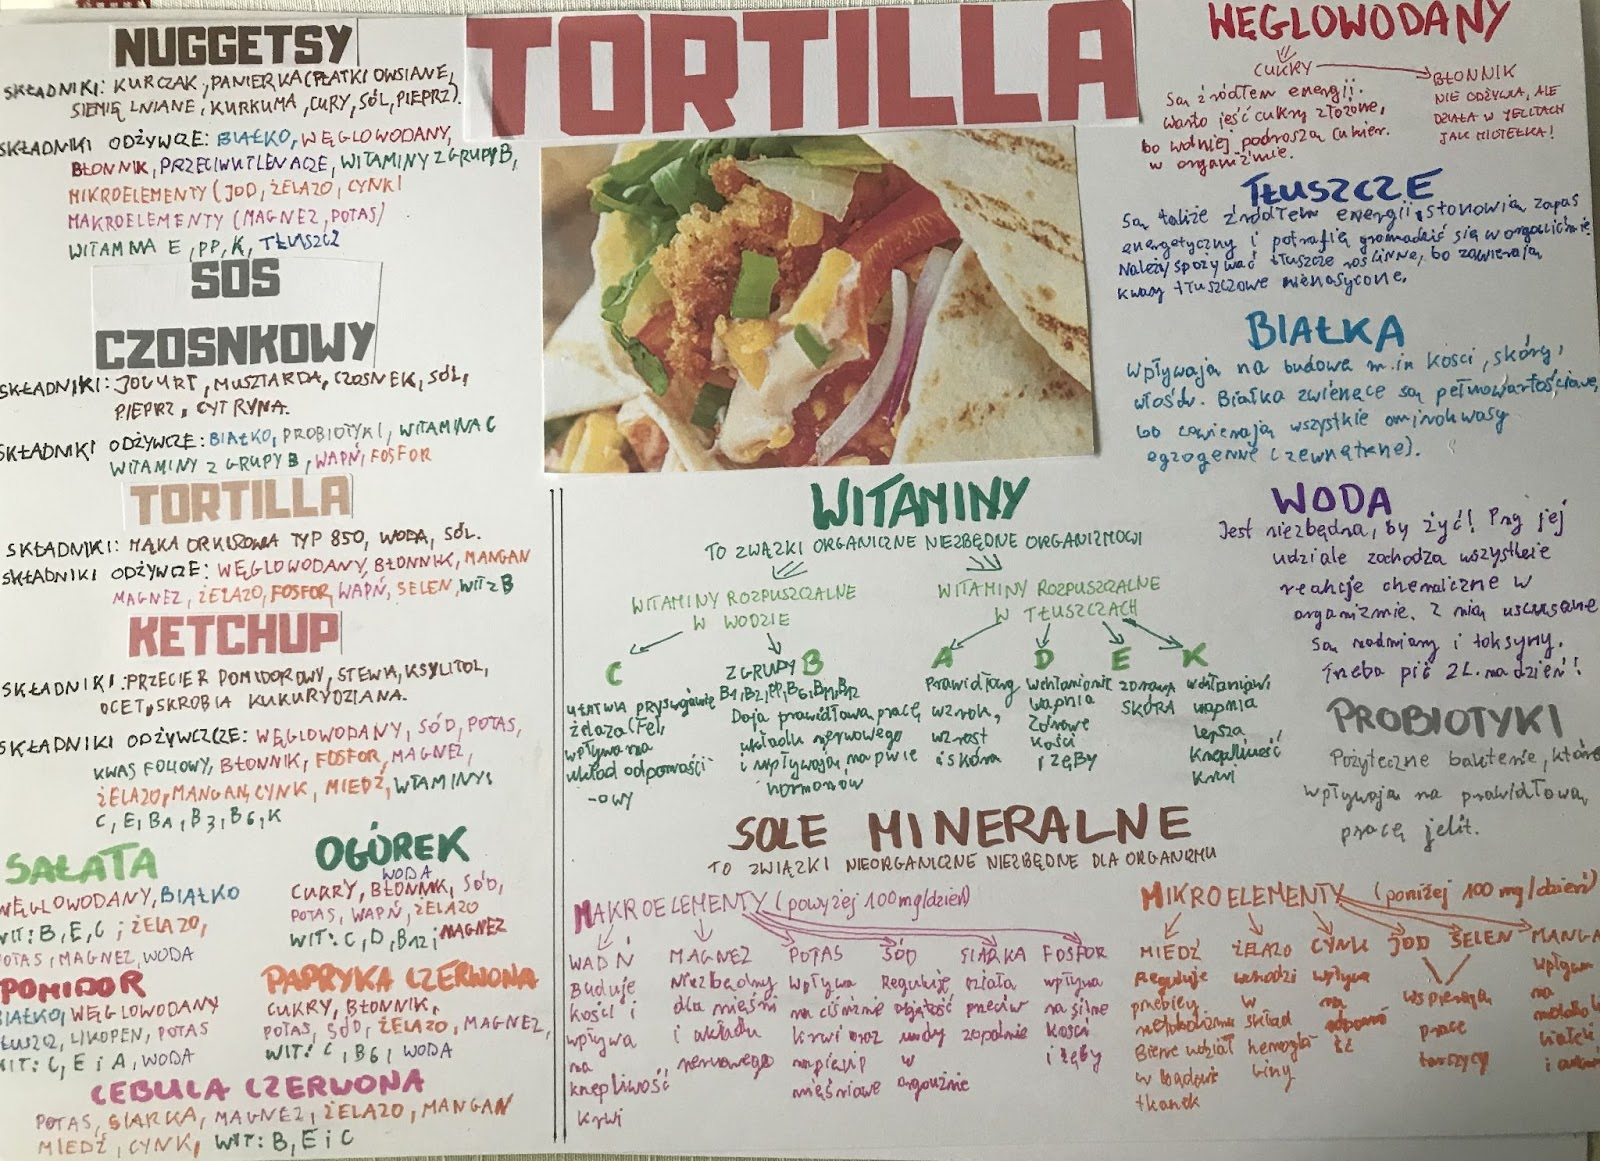 TORTILLA
NUGGETSY
SKŁADNIKI: KURCZAK, PANIERKA (PŁATKI OWSIANE,
SIEMIĘ LNIANE, KURKUMA, CURY, SÓL, PIEPRZ).
SKŁADNIKI ODŻYWCZE: BIAŁKO, WĘGLOWODANY,
BŁONNIK, PRZECIWUTLENIACZE, WITAMINY Z GRUPY B,
MIKROELEMENTY (JOD, ŻELAZO, CYNK)
MAKROELEMENTY (MAGNEZ, POTAS)
WITAMINA E, PP, K, TŁUSZCZ
SOS
CZOSNKOWY
SKŁADNIKI: JOGURT, MUSZTARDA, CZOSNEK, SÓL,
PIEPRZ, CYTRYNA.
SKŁADNIKI ODŻYWCZE: BIAŁKO, PROBIOTYKI, WITAMINA C
WITAMINY Z GRUPY B, WAPŃ, FOSFOR
TORTILLA
SKŁADNIKI: MĄKA ORKISZOWA TYP 850, WODA, SÓL.
SKŁADNIKI ODŻYWCZE: WĘGLOWODANY, BŁONNIK, MANGAN
MAGNEZ, ŻELAZO, FOSFOR, WAPŃ, SELEN, WIT z B
KETCHUP
SKŁADNIKI: PRZECIER POMIDOROWY, STEWIA, KSYLITOL,
OCET, SKROBIA KUKURYDZIANA.
SKŁADNIKI ODŻYWCZE: WĘGLOWODANY, SÓD, POTAS,
KWAS FOLIOWY, BŁONNIK, FOSFOR, MAGNEZ,
ŻELAZO, MANGAN, CYNK, MIEDŹ, WITAMINY:
C, E, B1, B3, B6, K
SAŁATA
WĘGLOWODANY, BIAŁKO
WIT: B, E, C; ŻELAZO,
POTAS, MAGNEZ, WODA
OGÓREK
WODA
CUKRY, BŁONNIK, SÓD,
POTAS, WAPŃ, ŻELAZO
WIT: C, D, B12; MAGNEZ
POMIDOR
BIAŁKO, WĘGLOWODANY
TŁUSZCZ, LIKOPEN, POTAS
WIT: C, E i A, WODA
PAPRYKA CZERWONA
CUKRY, BŁONNIK,
POTAS, SÓD, ŻELAZO, MAGNEZ,
WIT: C, B6, WODA
CEBULA CZERWONA
POTAS, SIARKA, MAGNEZ, ŻELAZO, MANGAN
MIEDŹ, CYNK, WIT: B, E i C
WĘGLOWODANY
CUKRY
Są źródłem energii.
Warto jeść cukry złożone,
bo wolniej podnoszą cukier
w organizmie.
BŁONNIK
NIE ODŻYWIA, ALE
DZIAŁA W JELITACH
JAK MIOTEŁKA!
TŁUSZCZE
Są także źródłem energii, stanowią zapas
energetyczny i potrafią gromadzić się w organizmie.
Należy spożywać tłuszcze roślinne, bo zawierają
kwasy tłuszczowe nienasycone.
BIAŁKA
Wpływają na budowę m.in kości, skóry,
włosów. Białka zwierzęce są pełnowartościowe,
bo zawierają wszystkie aminokwasy
egzogenne (zewnątrzne).
WODA
Jest niezbędna, by żyć! Przy jej
udziale zachodzą wszystkie
reakcje chemiczne w
organizmie. Z nią usuwane
są nadmiary i toksyny.
Trzeba pić 2L. na dzień!
PROBIOTYKI
Pożyteczne bakterie, które
wpływają na prawidłową
pracę jelit.
WITAMINY
TO ZWIĄZKI ORGANICZNE NIEZBĘDNE ORGANIZMOWI
WITAMINY ROZPUSZCZALNE
W WODZIE
WITAMINY ROZPUSZCZALNE
W TŁUSZCZACH
C
UŁATWIA PRZYSWAJANIE
żelaza (Fe),
wpływa na
układ odporności
-owy
Z GRUPY B
B1, B2, PP, B6, B11, B12
Dają prawidłową pracę
układu nerwowego
i wpływają na
hormonów
A
Prawidłowy
wzrok,
wzrost
i skóra
D
wchłanianie
wapnia
Zdrowe
kości
i zęby
E
ZDROWA
SKÓRA
K
wapnia
lepsza
krzepliwość
krwi
SOLE MINERALNE
TO ZWIĄZKI NIEORGANICZNE NIEZBĘDNE DLA ORGANIZMU
MAKROELEMENTY (powyżej 100mg/dzień)
WAPŃ
Buduje
kości i
wpływa
na
krzepliwość
krwi
MAGNEZ
Niezbędny
dla mięśni
i układu
nerwowego
POTAS
Wpływa
na ciśnienie
krwi oraz
napięcie
mięśniowe
SÓD
Reguluje
objętość
wody
w
organizmie
SIARKA
działa
przeciw
zapalnie
FOSFOR
wpływa
na silne
kości
i zęby
MIKROELEMENTY (poniżej 100 mg/dzień)
MIEDŹ
Reguluje
przebieg
metabolizmu
Bierze udział
w budowie
tkanek
ŻELAZO
wchodzi
w
skład
hemoglo
biny
CYNK
wpływa
na
JOD SELEN
wspierają
pracę
tarczycy
MANGA
wpływa
na